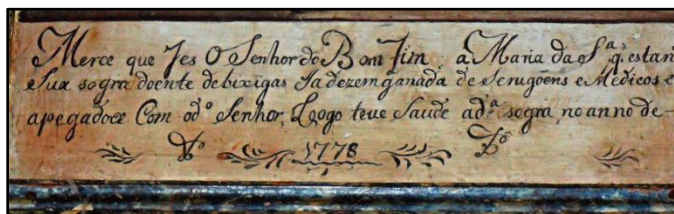 Merce que Fes O Senhor do Bom Jim a Maria da S.ª q. estan
e Sua sogra doente de bixigas Ja dezemganada de Serugoens e Medicos e
apegadoce Com o d.º Senhor, Logo teve Saude a d.ª sogra, no anno de
1778